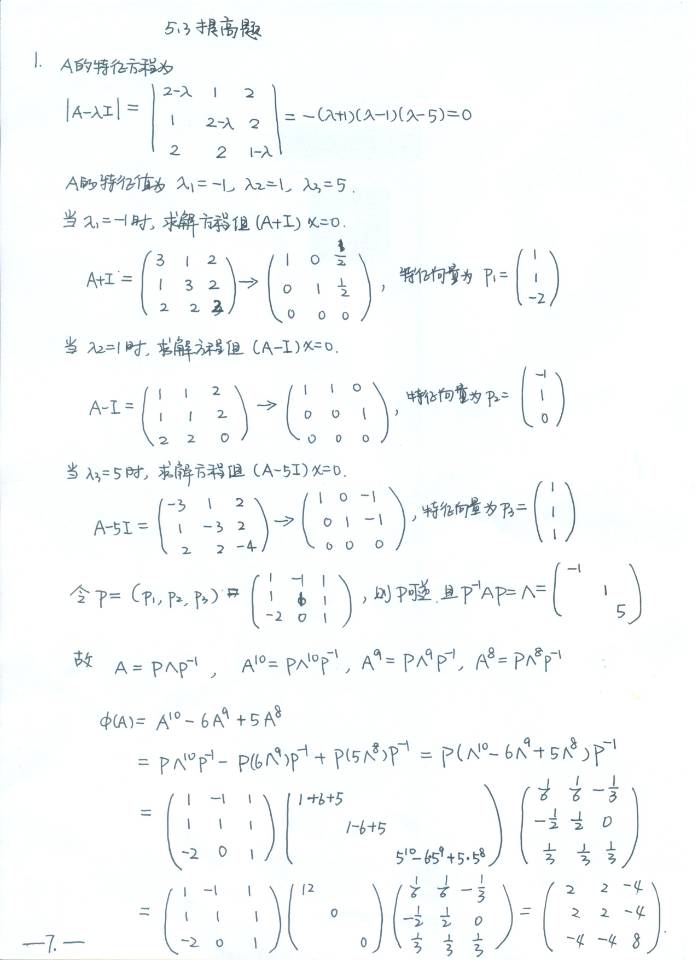 5.3 提高题
1. A的特征方程为
|A-λI| = | 2-λ 1 2 ; 1 2-λ 2 ; 2 2 1-λ | = -(λ+1)(λ-1)(λ-5)=0
A的特征值为 λ₁=-1, λ₂=1, λ₃=5.
当 λ₁=-1时, 求解方程组 (A+I) x=0.
A+I = ( 3 1 2 ; 1 3 2 ; 2 2 2 ) → ( 1 0 1/2 ; 0 1 1/2 ; 0 0 0 ), 特征向量为 p₁= ( 1 ; 1 ; -2 )
当 λ₂=1时, 求解方程组 (A-I) x=0.
A-I = ( 1 1 2 ; 1 1 2 ; 2 2 0 ) → ( 1 1 0 ; 0 0 1 ; 0 0 0 ), 特征向量为 p₂= ( -1 ; 1 ; 0 )
当 λ₃=5时, 求解方程组 (A-5I) x=0.
A-5I = ( -3 1 2 ; 1 -3 2 ; 2 2 -4 ) → ( 1 0 -1 ; 0 1 -1 ; 0 0 0 ), 特征向量为 p₃= ( 1 ; 1 ; 1 )
令 P= (p₁, p₂, p₃) = ( 1 -1 1 ; 1 1 1 ; -2 0 1 ), 则P可逆. 且 P⁻¹AP=Λ= ( -1 ; 1 ; 5 )
故 A = PΛP⁻¹, A¹⁰ = PΛ¹⁰P⁻¹, A⁹ = PΛ⁹P⁻¹, A⁸ = PΛ⁸P⁻¹
φ(A) = A¹⁰ - 6A⁹ + 5A⁸
= PΛ¹⁰P⁻¹ - P(6Λ⁹)P⁻¹ + P(5Λ⁸)P⁻¹ = P(Λ¹⁰ - 6Λ⁹ + 5Λ⁸)P⁻¹
= ( 1 -1 1 ; 1 1 1 ; -2 0 1 ) ( 1+6+5 ; 1-6+5 ; 5¹⁰-6·5⁹+5·5⁸ ) ( 1/6 1/6 -1/3 ; -1/2 1/2 0 ; 1/3 1/3 1/3 )
= ( 1 -1 1 ; 1 1 1 ; -2 0 1 ) ( 12 ; 0 ; 0 ) ( 1/6 1/6 -1/3 ; -1/2 1/2 0 ; 1/3 1/3 1/3 ) = ( 2 2 -4 ; 2 2 -4 ; -4 -4 8 ).
—7.—